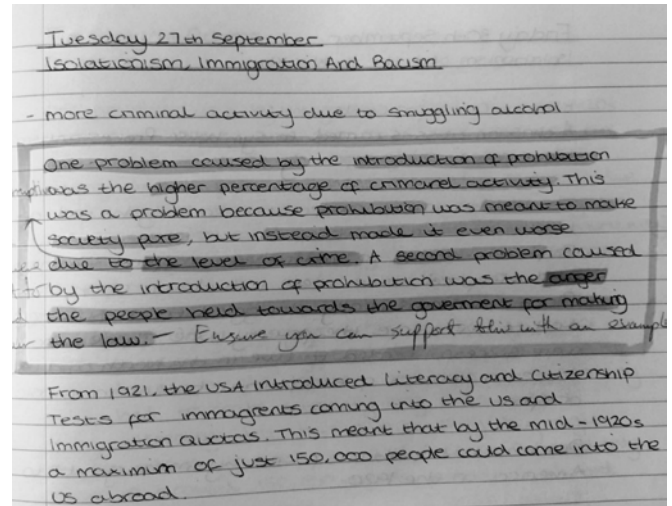 Tuesday 27th September
Isolationism, Immigration And Racism
- more criminal activity due to smuggling alcohol
One problem caused by the introduction of prohibution
was the higher percentage of crimanel activity. This
was a problem because prohibution was meant to make
society pure, but instead made it even worse
due to the level of crime. A second problem caused
by the introduction of prohibution was the anger
the people held towards the goverment for making
the law. - Ensure you can support this with an example
From 1921, the USA introduced Literacy and Citizenship
Tests for immagrents coming into the US and
Immigration Quotas. This meant that by the mid-1920s
a maximum of just 150,000 people could come into the
US abroad.